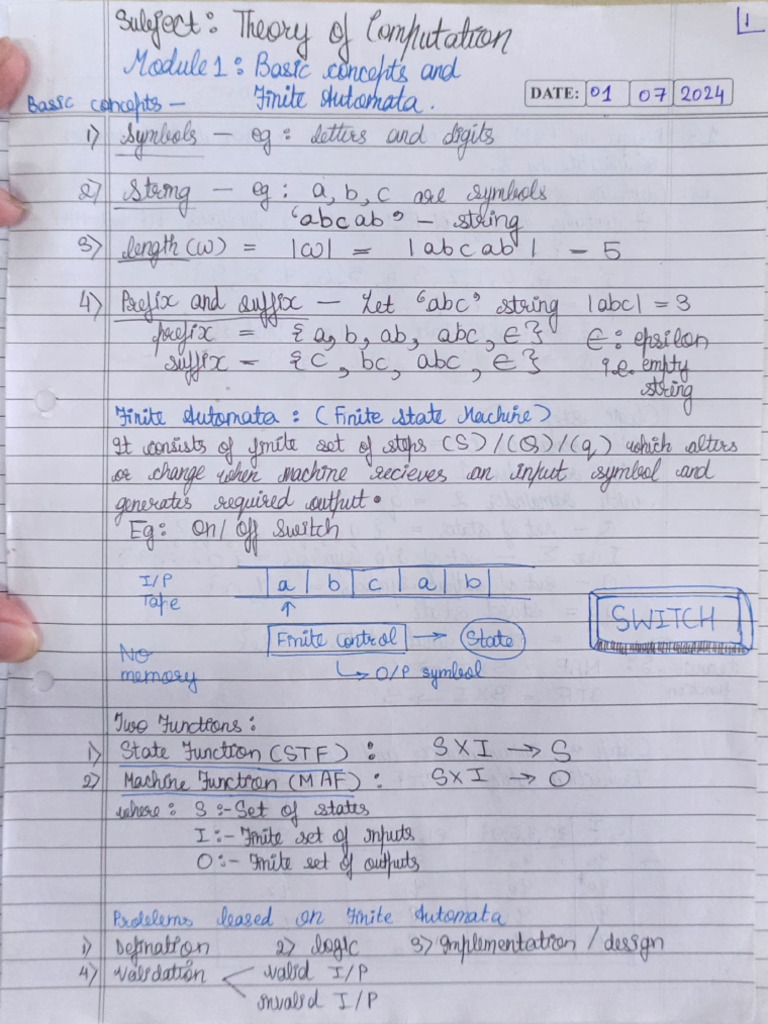 Subject: Theory of Computation
1
Module 1: Basic concepts and
Finite Automata.
DATE: 01 07 2024
Basic concepts –
1) Symbols – eg: letters and digits
2) String – eg: a, b, c are symbols
'abcab' – string
3) length (ω) = |ω| = |abcab| – 5
4) Prefix and suffix – Let 'abc' string |abc| = 3
prefix = {a, b, ab, abc, ∈} ∈: epsilon
suffix = {c, bc, abc, ∈} i.e. empty
string
Finite Automata: (Finite State Machine)
It consists of finite set of steps (S)/(Q)/(q) which alters
or change when machine recieves an input symbol and
generates required output.
Eg: On/Off Switch
I/P
Tape
a b c a b
↑
Finite control → State
↳ O/P symbol
SWITCH
No
memory
Two Functions:
1) State Function (STF): S X I → S
2) Machine Function (MAF): S X I → O
where: S :- Set of states
I :- Finite set of inputs
O :- Finite set of outputs
Problems based on Finite Automata
1) Defination 2) logic 3) Implementation / design
4) Validation < valid I/P
invalid I/P